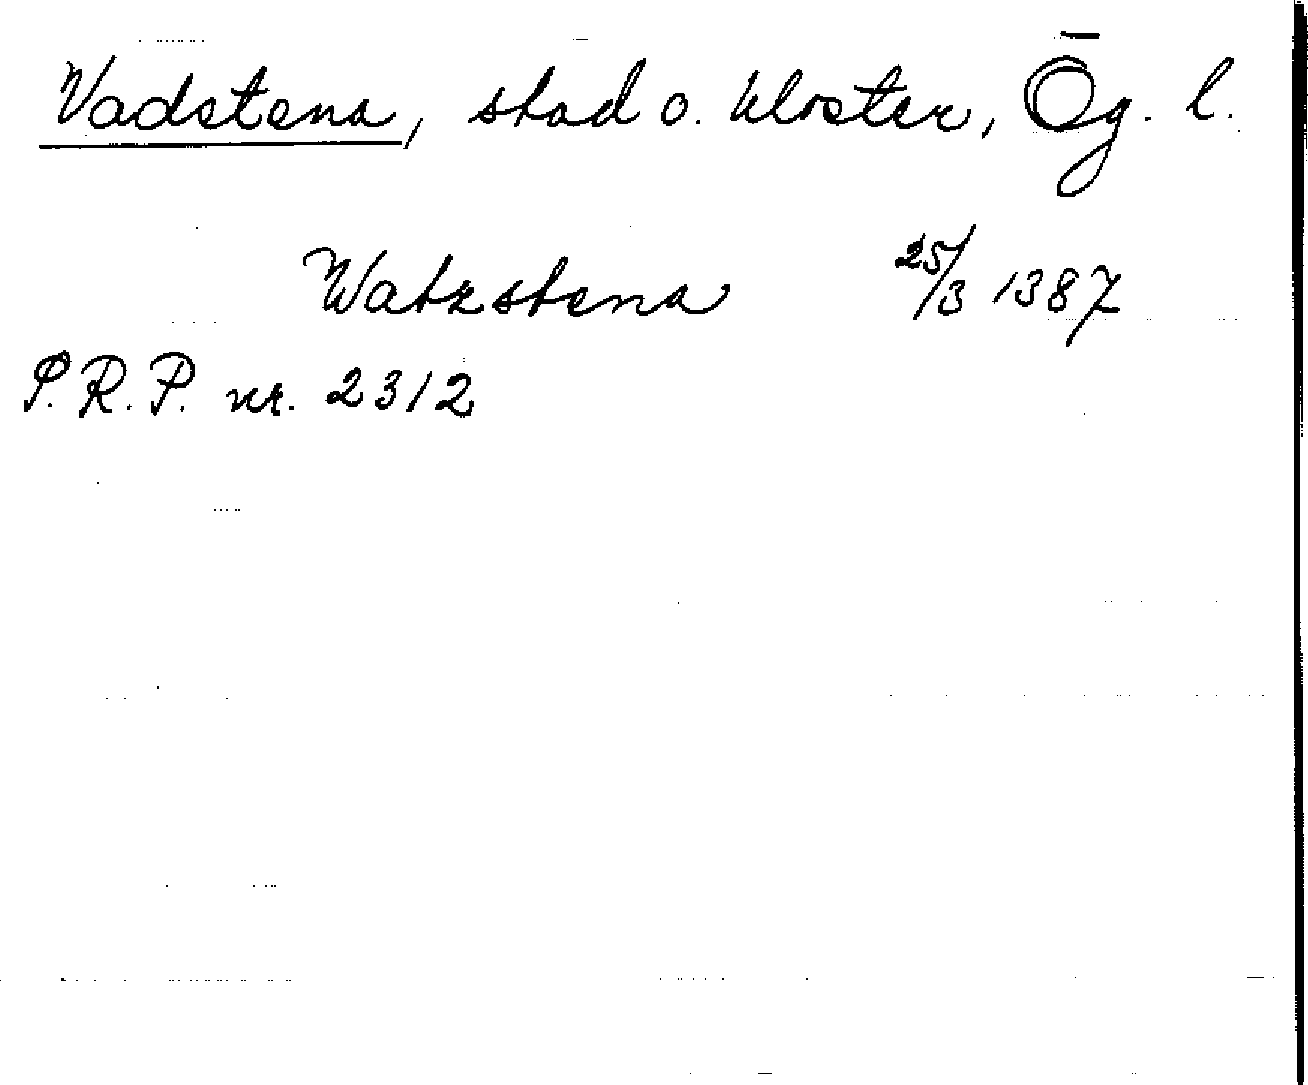 Vadstena, stad o. kloster, Ög. l.
Watzstena 25/3 1387
P.R.P. nr. 2312